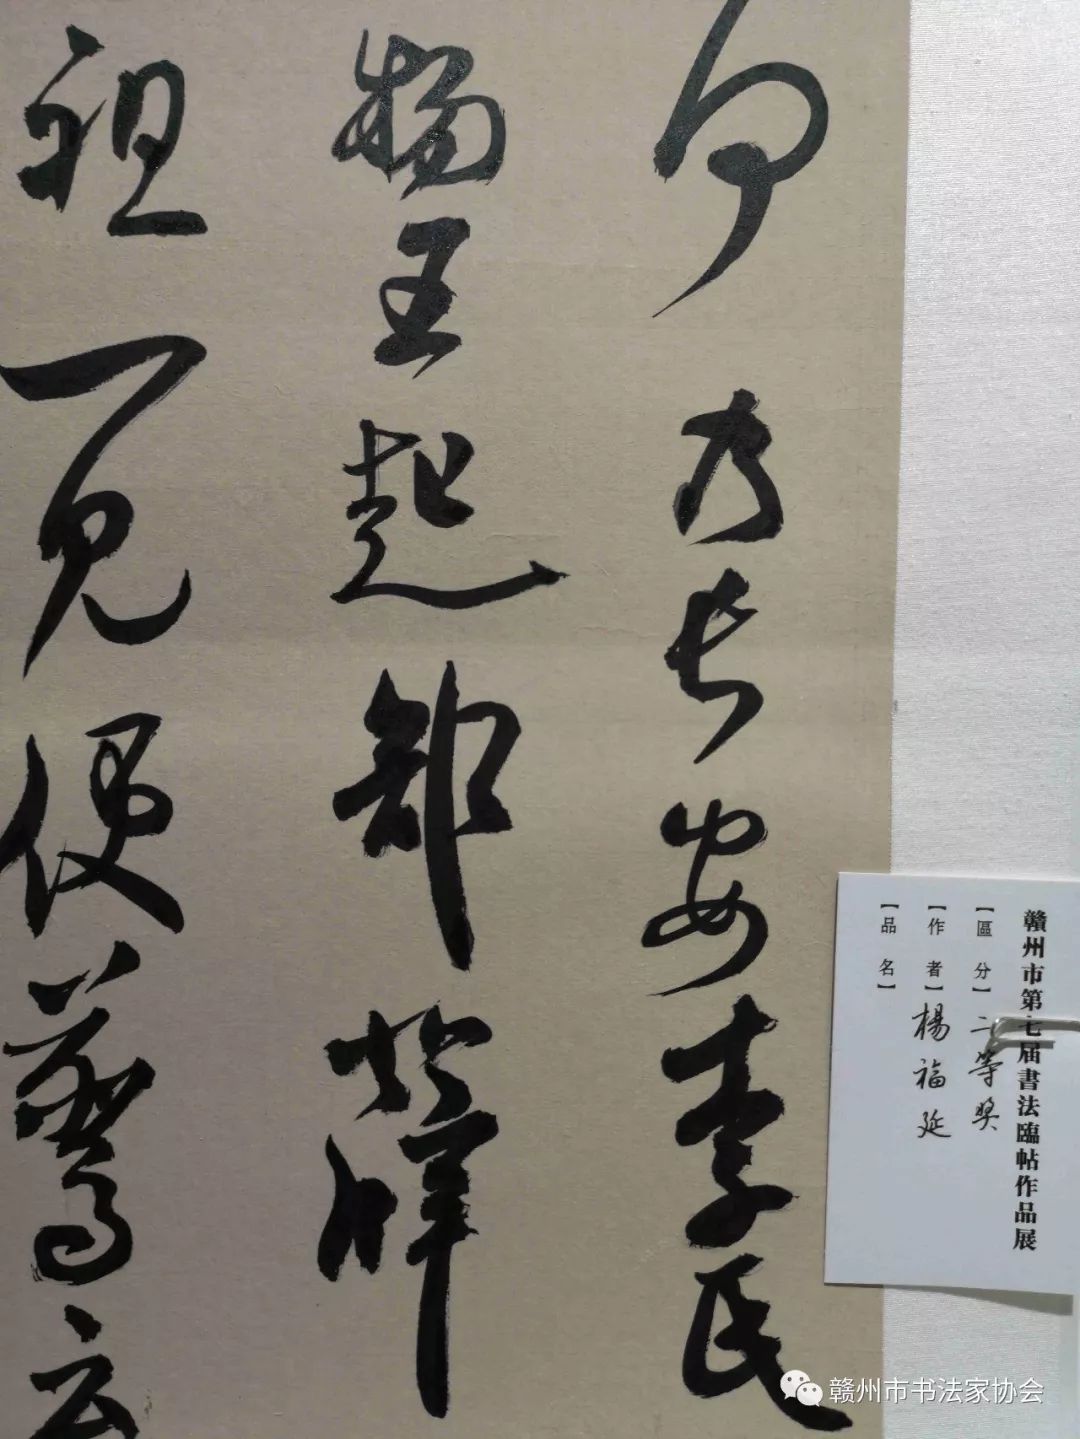 贛州市第七届書法臨帖作品展
【區分】二等奖
【作者】楊福延
【品名】
何乃長安李氏
物王起部薛
祖一見便驚云
赣州市书法家协会